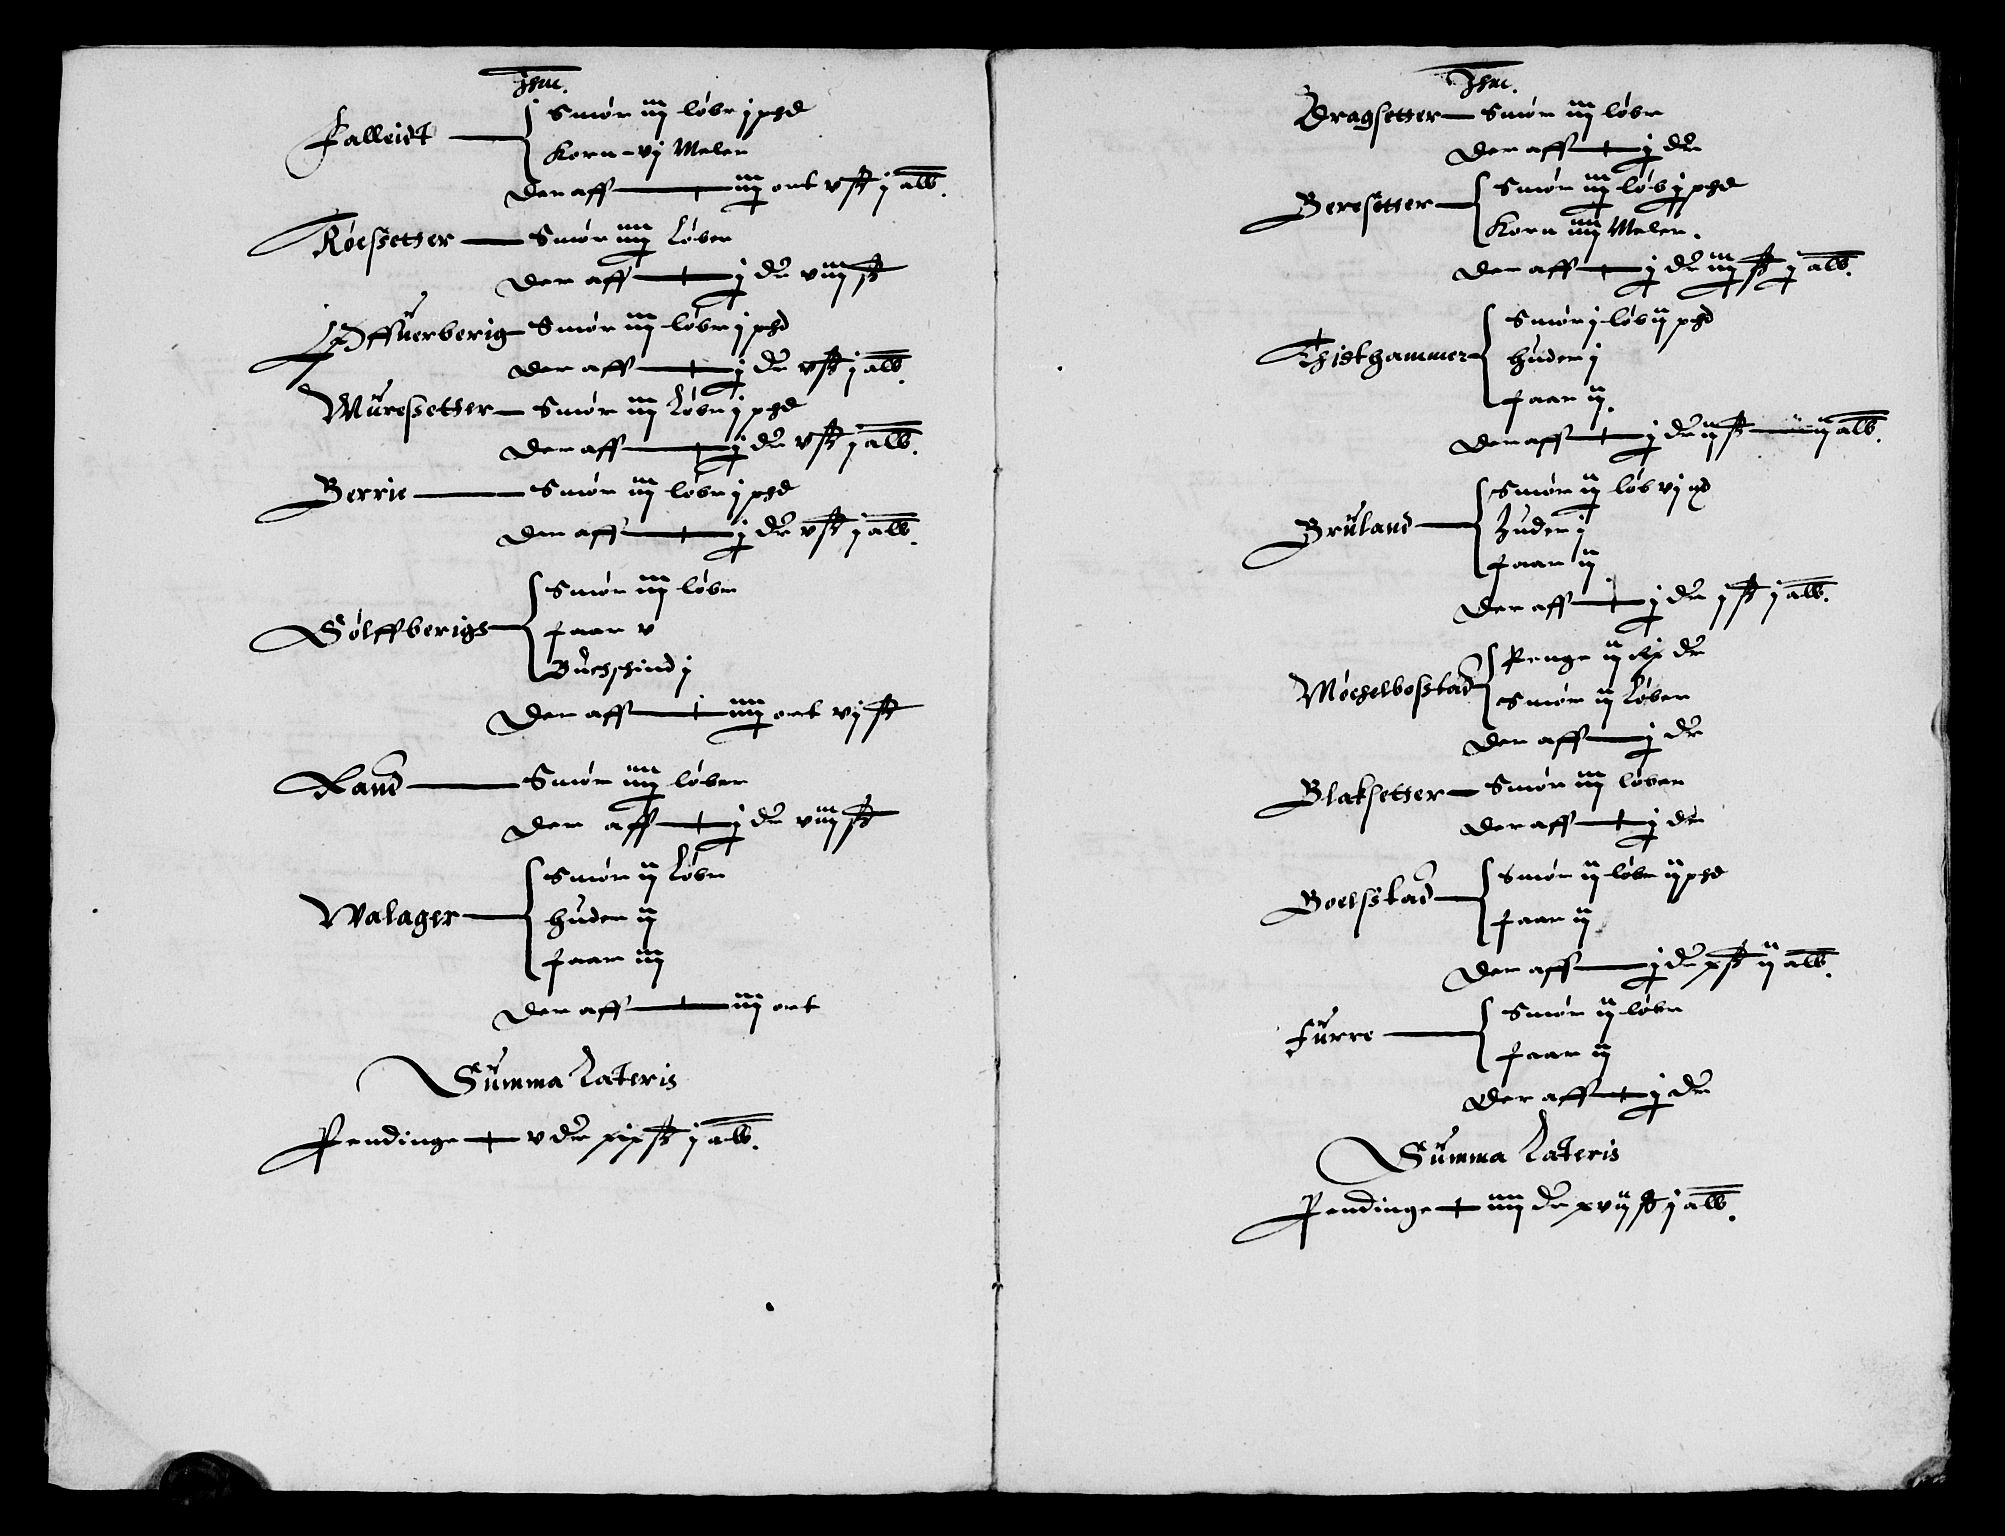 Jhm.
Falleidt Smör iij löbr j phd
Korn vj Meler
Der aff iij ort v ß j alb.
Röeszetter Smör iiij Löber
Der aff j dr viij ß
Offuerberig Smör iij löbr j phd
Der aff j dr v ß j alb.
Mureszetter Smör iij Löbr j phd
Der aff j dr v ß j alb.
Berrie Smör iij löbr j phd
Der aff j dr v ß j alb.
Sölffberigs Smör iij löbr
Faar v
Buchschind j
Der aff iiij ort vj ß
Rand Smör iiij löber
Der aff j dr viij ß
Walager Smör ij Löbr
huder ij
Faar iij
Der aff iij ort
Summa Lateris
Pendinge v dr xix ß j alb.
Jhm.
Dragsetter Smör iij löbr
Der aff j dr
Beresetter Smör iij löb j phd
Korn iiij Meler.
Der aff j dr iij ß j alb.
Thisthammer Smör j löb ij phd
huder j
Faar ij.
Der aff j dr ij ß ij alb.
Bruland Smör ij löb vj
Huder j
Faar ij
Der aff j dr j ß j alb.
Möchelbostad Penge ij dr
Smör ij Löber
Der aff j dr
Blaksetter Smör iij löber
Der aff j dr
Boelsstad Smör ij löbr ij phd
Faar ij
Der aff j dr x ß ij alb.
Furre Smör ij löbr
Faar ij
Der aff j dr
Summa Lateris
Pendinge iiij dr xvij ß j alb.